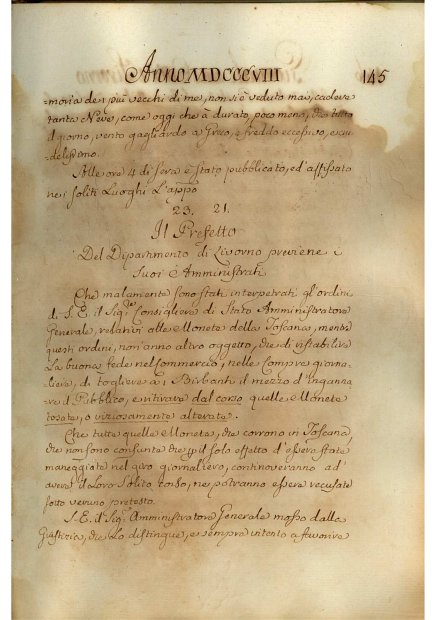 Anno MDCCCVIII 145
-moria de i più vecchi di me, non si è veduto mai, cadere
tanta Neve, come oggi che à durato, poco meno, che tutto
il giorno, vento gagliardo a Greco, e freddo eccessivo, e cru-
delissimo.
Alle ore 4 di sera è stato pubblicato, ed affissato
ne i soliti Luoghi L'appo
23. 21.
Il Prefetto
Del Dipartimento di Livorno previene i
Suoi Amministrati
Che malamente sono stati interpetrati gl'ordini
di S. E. il Sigre Consigliere di Stato Amministratore
Generale, relativi alle Monete della Toscana, mentre
questi ordini, non anno altro oggetto, che di ristabilire
La buona fede nel Commercio, nelle Compre giorna-
liere, di togliere a i Birbanti il mezzo d'inganna-
re il Pubblico, e ritirare dal corso quelle Monete
tosate, o viziosamente alterate.
Che tutte quelle Monete, che corrono in Toscana,
che non sono consunte che p il solo effetto d'essere state
maneggiate nel giro giornaliero, continoveranno ad'
avere il Loro Solito corso, ne potranno essere recusate
sotto veruno pretesto.
S. E. il Sigre Amministratore Generale mosso dalla
Giustizia, che Lo distingue, e sempre intento a favorire